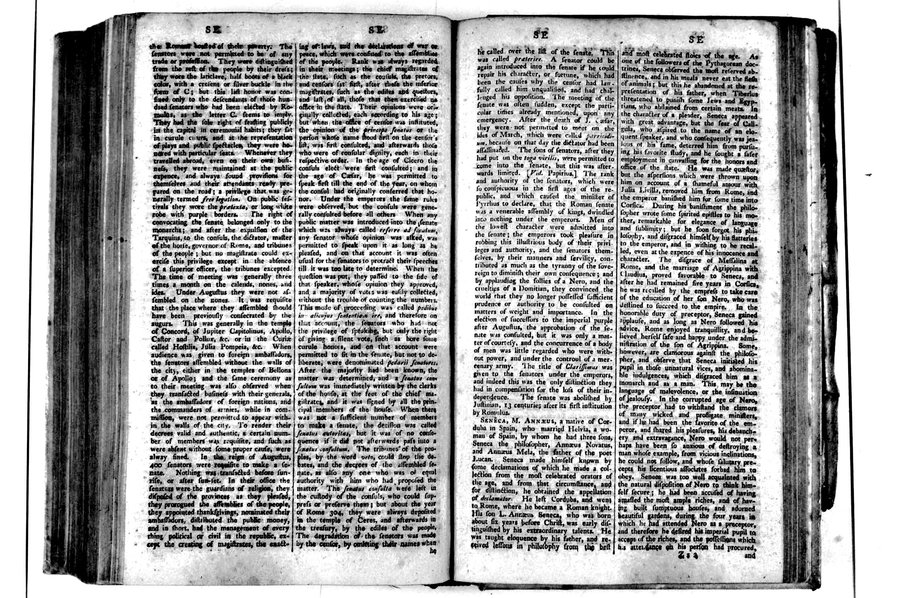 SE
SE
the Romans boasted of their poverty. The
senators were not permitted to be of any
trade or profession. They were distinguished
from the rest of the people by their dress;
they wore the laticlave, half boots of a black
color, with a crescent or silver buckle in the
form of C; but this last honor was con-
fined only to the descendants of those hun-
dred senators who had been elected by Ro-
mulus, as the letter C seems to imply.
They had the sole right of feasting publicly
in the capitol in ceremonial habits; they sat
in curule chairs, and at the representation
of plays and public spectacles, they were ho-
nored with particular seats. Whenever they
travelled abroad, even on their own busi-
ness, they were maintained at the public
expence, and always found provisions for
themselves and their attendants ready pre-
pared on the road; a privilege that was ge-
nerally termed free legation. On public fes-
tivals they wore the prætexta, or long white
robe with purple borders. The right of
convocating the senate belonged only to the
monarchs; and after the expulsion of the
Tarquins, to the consuls, the dictator, master
of the horse, governor of Rome, and tribunes
of the people; but no magistrate could ex-
ercise this privilege except in the absence
of a superior officer, the tribunes excepted.
The time of meeting was generally three
times a month on the calends, nones, and
ides. Under Augustus they were not as-
sembled on the nones. It was requisite
that the place where they assembled should
have been previously consecrated by the
augurs. This was generally in the temple
of Concord, of Jupiter Capitolinus, Apollo,
Castor and Pollux, &c. or in the Curiæ
called Hostilia, Julia Pompeia, &c. When
audience was given to foreign ambassadors,
the senators assembled without the walls of
the city, either in the temples of Bellona
or of Apollo; and the same ceremony as
to their meeting was also observed when
they transacted business with their generals,
as the ambassadors of foreign nations, and
the commanders of armies, while in com-
mission, were not permitted to appear with-
in the walls of the city. To render their
decrees valid and authentic, a certain num-
ber of members was requisite, and such as
were absent without some proper cause, were
alway fined. In the reign of Augustus,
400 senators were requisite to make a se-
nate. Nothing was transacted before sun-
rise, or after sun-set. In their office the
senators were the guardians of religion, they
disposed of the provinces as they pleased,
they prorogued the assemblies of the people,
they appointed thanksgivings, nominated their
ambassadors, distributed the public money,
and in short, had the management of every
thing political or civil in the republic, ex-
cept the creating of magistrates, the enact-
ing of laws, and the declarations of war or
peace, which were confined to the assemblies
of the people. Rank was always regarded
in their meetings; the chief magistrates of
the state, such as the consuls, the pretors,
and censors sat first, after these the inferior
magistrates, such as the ediles and questors,
and last, of all, those that then exercised no
office in the state. Their opinions were ori-
ginally collected, each according to his age;
but when the office of censor was instituted,
the opinion of the princeps senatus or the
person whose name stood first on the censor's
list, was first consulted, and afterwards those
who were of consular dignity, each in their
respective order. In the age of Cicero the
consuls elect were first consulted; and in
the age of Cæsar, he was permitted to
speak first till the end of the year, on whom
the consul had originally conferred that ho-
nor. Under the emperors the same rules
were observed, but the consuls were gene-
rally consulted before all others When any
public matter was introduced into the senate
which was always called referre ad senatum,
any senator whose opinion was asked, was
permitted to speak upon it as long as he
pleased, and on that account it was often
usual for the senators to protract their speeches
till it was too late to determine. When the
question was put, they passed to the side of
that speaker, whose opinion they approved,
and a majority of votes was easily collected,
without the trouble of counting the numbers.
This mode of proceeding was called pedibus
in alicujus sententiam ire, and therefore on
that account, the senators who had not
the privilege of speaking, but only the right
of giving a silent vote, such as bore some
curule honors, and on that account were
permitted to sit in the senate, but not to de-
liberate, were denominated pedarii senatores.
After the majority had been known, the
matter was determined, and a senatus con-
sultum was immediately written by the clerks
of the house, at the feet of the chief ma-
gistrates, and it was signed by all the prin-
cipal members of the house. When there
was not a sufficient number of members
to make a senate, the decision was called
senatus autoritas, but it was of no conse-
quence if it did not afterwards pass into a
senatus consultum. The tribunes of the peo-
ples, by the word veto, could stop the de-
bates, and the decrees of the assembled se-
nate, as also any one who was of equal
authority with him who had proposed the
matter. The senatus consulta were left in
the custody of the consuls, who could sup-
press or preserve them; but about the year
of Rome 304, they were always deposited
in the temple of Ceres, and afterwards in
the treasury, by the ediles of the people.
The degradation of the senators was made
by the censor, by omitting their names when
he
SE
SE
he called over the list of the senate. This
was called præterire. A senator could be
again introduced into the senate if he could
repair his character, or fortune, which had
been the causes why the censor had law-
fully called him unqualified, and had chal-
lenged his opposition. The meeting of the
senate was often sudden, except the parti-
cular times already mentioned, upon any
emergency. After the death of J. Cæsar,
they were not permitted to meet on the
ides of March, which were called parricidi-
um, because on that day the dictator had been
assassinated. The sons of senators, after they
had put on the toga virilis, were permitted to
come into the senate, but this was after-
wards limited. [Vid. Papirius.] The rank
and authority of the senators, which were
so conspicuous in the first ages of the re-
public, and which caused the minister of
Pyrrhus to declare, that the Roman senate
was a venerable assembly of kings, dwindled
into nothing under the emperors. Men of
the lowest character were admitted into
the senate; the emperors took pleasure in
robbing this illustrious body of their privi-
leges and authority, and the senators them-
selves, by their manners and servility, con-
tributed as much as the tyranny of the sove-
reign to diminish their own consequence; and
by applauding the follies of a Nero, and the
cruelties of a Domitian, they convinced the
world that they no longer possessed sufficient
prudence or authority to be consulted on
matters of weight and importance. In the
election of successors to the imperial purple
after Augustus, the approbation of the se-
nate was consulted, but it was only a mat-
ter of courtesy, and the concurrence of a body
of men was little regarded who were with-
out power, and under the controul of a mer-
cenary army. The title of Clarissimus was
given to the senators under the emperors,
and indeed this was the only distinction they
had in compensation for the loss of their in-
dependence. The senate was abolished by
Justinian, 13 centuries after its first institution
by Romulus.
SENECA, M. ANNÆUS, a native of Cor-
duba in Spain, who married Helvia, a wo-
man of Spain, by whom he had three sons,
Seneca the philosopher, Annæus Novatus,
and Annæus Mela, the father of the poet
Lucan. Seneca made himself known by
some declamations of which he made a col-
lection from the most celebrated orators of
the age, and from that circumstance, and
for distinction, he obtained the appellation
of declamator. He left Corduba, and went
to Rome, where he became a Roman knight.
His son L. Annæus Seneca, who was born
about six years before Christ, was early dis-
tinguished by his extraordinary talents. He
was taught eloquence by his father, and re-
ceived lessons in philosophy from the best
and most celebrated stoics of the age. As
one of the followers of the Pythagorean doc-
trines, Seneca observed the most reserved ab-
stinence, and in his meals never eat the flesh
of animals; but this he abandoned at the re-
presentation of his father, when Tiberius
threatened to punish some Jews and Egyp-
tians, who abstained from certain meats. In
the character of a pleader, Seneca appeared
with great advantage, but the fear of Cali-
gula, who aspired to the name of an elo-
quent speaker, and who consequently was jea-
lous of his fame, deterred him from pursu-
ing his favorite study, and he sought a safer
employment in canvassing for the honors and
offices of the state. He was made questor,
but the aspersions which were thrown upon
him on account of a shameful amour with
Julia Livilla, removed him from Rome, and
the emperor banished him for some time into
Corsica. During his banishment the philo-
sopher wrote some spirited epistles to his mo-
ther, remarkable for elegance of language
and sublimity; but he soon forgot his phi-
losophy, and disgraced himself by his flatteries
to the emperor, and in wishing to be recal-
led, even at the expence of his innocence and
character. The disgrace of Messalina at
Rome, and the marriage of Agrippina with
Claudius, proved favorable to Seneca, and
after he had remained five years in Corsica,
he was recalled by the empress to take care
of the education of her son Nero, who was
destined to succeed to the empire. In the
honorable duty of preceptor, Seneca gained
applause, and as long as Nero followed his
advice, Rome enjoyed tranquillity, and be-
lieved herself safe and happy under the admi-
nistration of the son of Agrippina. Some,
however, are clamorous against the philoso-
pher, and observe that Seneca initiated his
pupil in those unnatural vices, and abomina-
ble indulgences, which disgraced him as a
monarch and as a man. This may be the
language of malevolence, or the insinuation
of jealousy. In the corrupted age of Nero,
the preceptor had to withstand the clamors
of many wicked and profligate ministers,
and if he had been the favorite of the em-
peror, and shared his pleasures, his debauch-
ery and extravagance, Nero would not per-
haps have been so anxious of destroying a
man whose example, from vicious inclinations,
he could not follow, and whose salutary pre-
cepts his licentious associates forbad him to
obey. Seneca was too well acquainted with
the natural disposition of Nero to think him-
self secure; he had been accused of having
amassed the most ample riches, and of hav-
ing built sumptuous houses, and adorned
beautiful gardens, during the four years in
which he had attended Nero as a preceptor,
and therefore he desired his imperial pupil to
accept of the riches, and the possessions which
his attendance on his person had procured,
Z z 2
and